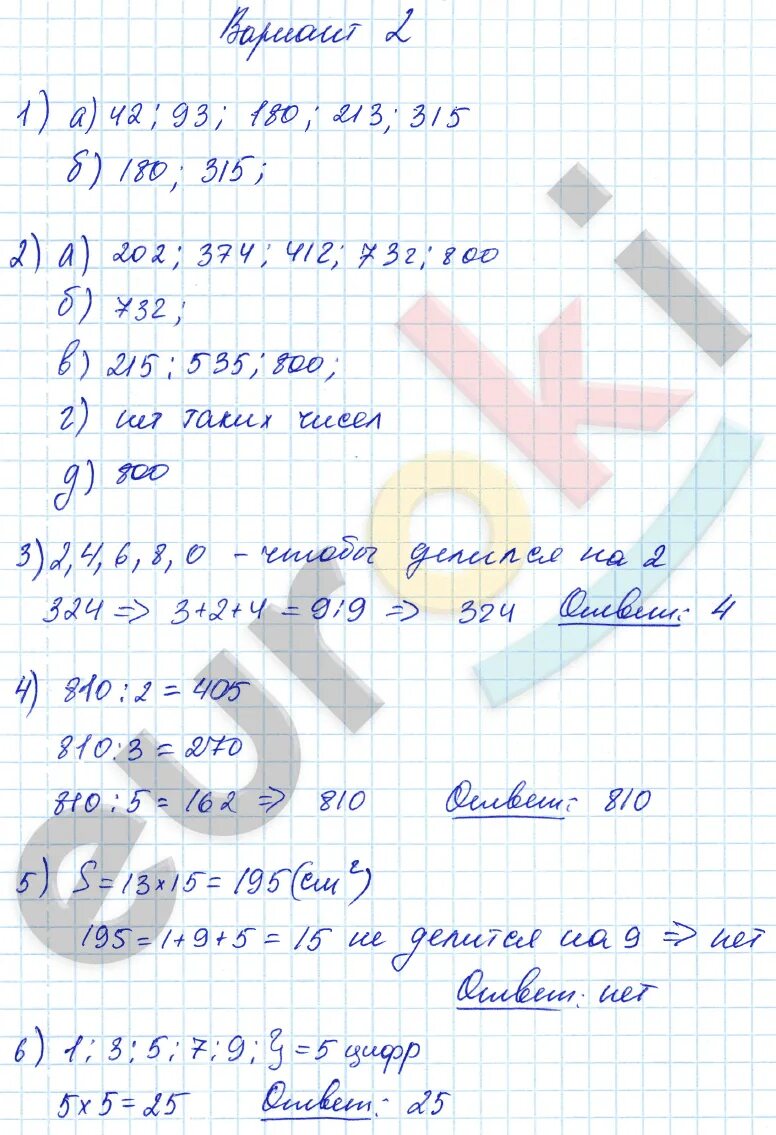 Вариант 2
1) а) 42; 93; 180; 213; 315
б) 180; 315;
2) а) 202; 374; 412; 732; 800
б) 732;
в) 215; 535; 800;
г) нет таких чисел
д) 800
3) 2, 4, 6, 8, 0 - чтобы делился на 2
324 => 3+2+4 = 9:9 => 324 Ответ: 4
4) 810:2 = 405
810:3 = 270
810:5 = 162 => 810 Ответ: 810
5) S = 13×15 = 195 (см²)
195 = 1+9+5 = 15 не делится на 9 => нет
Ответ: нет
6) 1; 3; 5; 7; 9; } = 5 цифр
5×5 = 25 Ответ: 25
euroki